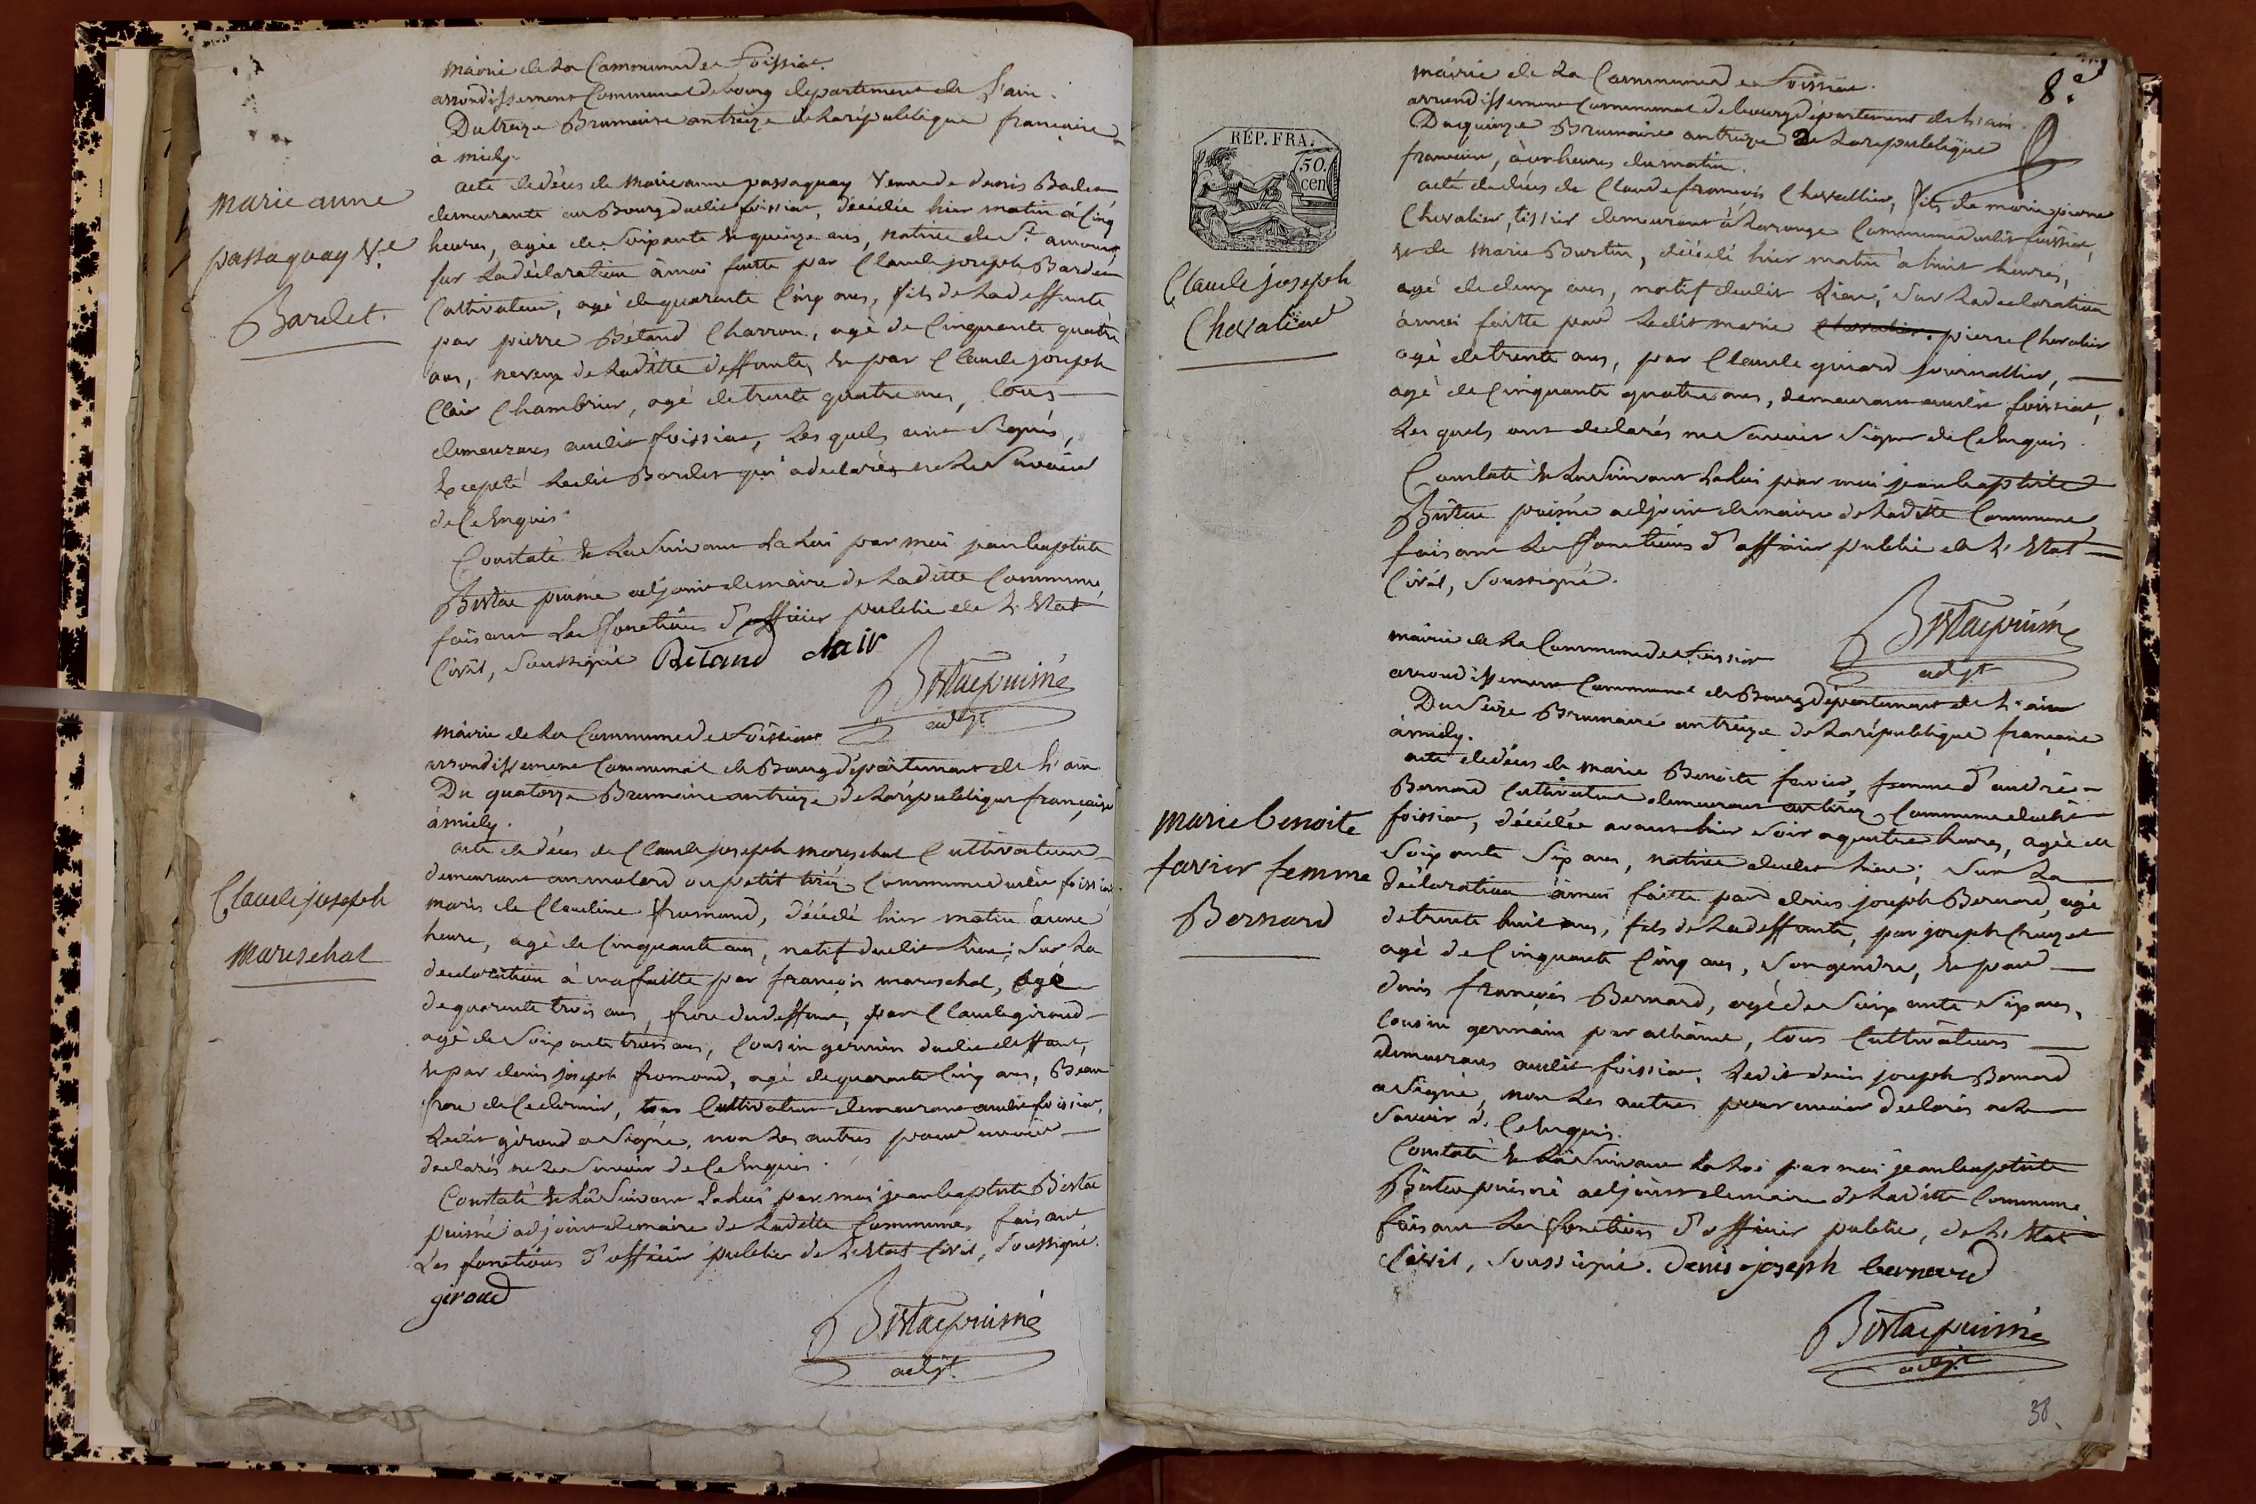 mairie de La Commune de Foissiat.
arrondissement Communal de bourg departement de L'ain.
Du treize Brumaire an treize de La république française
à midy.
acte de déces de Marie anne passaquay Veuve de denis Bardet
demeurante au Bourg dudit foissiat, décédée hier matin à Cinq
heures, agée de Soixante & quinze ans, native de St. amour,
sur La déclaration à moi faitte par Claude joseph Bardet
Cultivateur, agé de quarante Cinq ans, fils de La deffunte
par pierre Bétand Charron, agé de Cinquante quatre
ans, neveux de Laditte deffunte, & par Claude joseph
Clair Chambrier, agé de trente quatre ans, tous
demeurans audit foissiat, Les quels ont Signés,
Excepté Ledit Bardet qui a declaré ne Le Savoir
de Ce Enquis.
Constaté & Lu Suivant La Loi par moi jean baptiste
Bistac puisné adjoint de maire de Laditte Commune,
faisant Les fonctions d'officier public de L'Etat
Civil, Soussigné Bétand clair
Bistac puisné
adjt.
marie anne
passaquay Ve.
Bardet.
mairie de La Commune de Foissiat
arrondissement Communal de Bourg département de L'ain
Du quatorze Brumaire an treize de La république française
à midy.
acte de déces de Claude joseph mareschal Cultivateur
demeurant au molard ou petit tiret Commune dudit foissiat
maris de Claudine fromond, décédé hier matin à une
heure, agé de Cinquante ans, natif dudit Lieu; sur La
déclaration à moi faitte par françois mareschal, agé
de quarante trois ans, frere du deffunt, par Claude giroud
agé de Soixante trois ans, Cousin germin dudit deffunt,
& par denis joseph fromond, agé de quarante Cinq ans, Beau
frere de Ce dernier, tous Cultivateurs demeurans audit foissiat,
Ledit giroud a Signé, non Les autres pour avoir
declarés ne Le Savoir de Ce Enquis.
Constaté & Lû Suivant La Loi par moi jean baptiste Bistac
puisné adjoint de maire de Laditte Commune, faisant
Les fonctions d'officier public de L'Etat Civil, Soussigné.
giroud
Bistac puisné
adjt.
Claude joseph
Mareschal
8.e
mairie de La Commune de Foissiat.
arrondissement Communal de bourg département de L'ain.
Du quinze Brumaire an treize de La république
française, à          heures du matin.
acte de déces de Claude françois Chevallier, fils de marie pierre
Chevalier, tissier demeurant à           Commune dudit foissiat,
& de Marie Burtin, décédé hier matin à huit heures,
agé de deux ans, natif dudit Lieu; Sur La declaration
à moi faitte par Ledit marie Chevalier pierre Chevalier
agé de trente ans, par Claude guiard journallier,
agé de Cinquante quatre ans, demeurans audit foissiat,
Les quels ont declarés ne Savoir Signer de Ce Enquis.
Constaté & Lu Suivant La Loi par moi jean baptiste
Bistac puisné adjoint de maire de Laditte Commune
faisant Les fonctions d'officier public de L'Etat
Civil, Soussigné.
Bistac puisné
adjt
RÉP. FRA.
50.
cen
Claude joseph
Chevalier
mairie de La Commune de Foissiat
arrondissement Communal de Bourg département de L'ain
Du Seize Brumaire an treize de La république française
à midy.
acte de déces de marie Benoite favier, femme d'andré
Bernard Cultivateur demeurant au tiret Commune dudit
foissiat, décédée avant hier Soir a quatre heures, agée de
Soixante Six ans, native dudit Lieu; Sur La
declaration à moi faitte par denis joseph Bernard, agé
de trente huit ans, fils de La deffunte, par joseph Cruzet
agé de Cinquante Cinq ans, Son gendre, & par
denis françois Bernard, agé de Soixante Six ans,
Cousin germain par alliance, tous Cultivateurs
demeurans audit foissiat, Ledit denis joseph Bernard
a Signé, non Les autres pour avoir declarés ne Le
Savoir de Ce Enquis.
Constaté & Lû Suivant La Loi par moi jean baptiste
Bistac puisné adjoint de maire de Laditte Commune
faisant Les fonctions d'officier public, de L'Etat
Civil, Soussigné. Denis joseph bernard
Bistac puisné
adjt
marie benoite
favier femme
Bernard
38